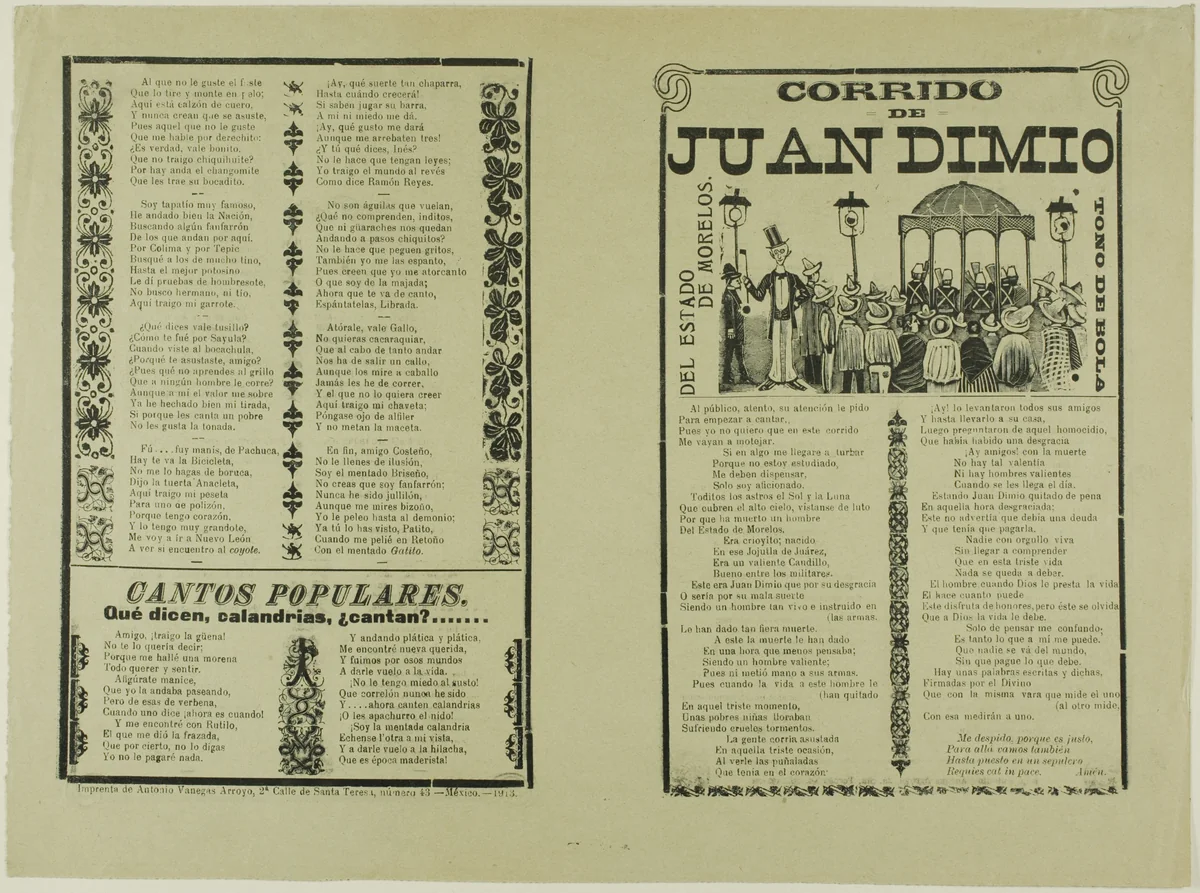 Al que no le guste el fuste
Que lo tire y monte en pelo;
Aquí está calzón de cuero,
Y nunca crean que se asuste,
Pues aquel que no le guste
Que me hable por derechito:
¿Es verdad, vale bonito,
Que no traigo chiquihuite?
Por hay anda el changomite
Que les trae su bocadito.
Soy tapatío muy famoso,
He andado bien la Nación,
Buscando algún fanfarrón
De los que andan por aquí.
Por Colima y por Tepic
Busqué a los de mucho tino,
Hasta el mejor potosino
Le dí pruebas de hombresote,
No busco hermano, ni tío,
Aquí traigo mi garrote.
¿Qué dices vale tusillo?
¿Cómo te fué por Sayula?
Cuando viste al bocachula,
¿Porqué te asustaste, amigo?
¿Pues qué no aprendes al grillo
Que a ningún hombre le corre?
Aunque a mí el valor me sobre
Ya he hechado bien mi tirada,
Si porque les canta un pobre
No les gusta la tonada.
Fú....fuy manis, de Pachuca,
Hay te va la Bicicleta,
No me lo hagas de boruca,
Dijo la tuerta Anacleta,
Aquí traigo mi peseta
Para uno de polizón,
Porque tengo corazón,
Y lo tengo muy grandote,
Me voy a ir a Nuevo León
A ver si encuentro al coyote.
¡Ay, qué suerte tan chaparra,
Hasta cuándo crecerá!
Si saben jugar su barra,
A mí ni miedo me dá.
¡Ay, qué gusto me dará
Aunque me arrebaten tres!
¿Y tú qué dices, Inés?
No le hace que tengan leyes;
Yo traigo el mundo al revés
Como dice Ramón Reyes.
No son águilas que vuelan,
¿Qué no comprenden, inditos,
Que ni güaraches nos quedan
Andando a pasos chiquitos?
No le hace que peguen gritos,
También yo me las espanto,
Pues creen que yo me atorcanto
O que soy de la majada;
Ahora que te va de canto,
Espántatelas, Librada.
Atórale, vale Gallo,
No quieras cacaraquiar,
Que al cabo de tanto andar
Nos ha de salir un callo,
Aunque los mire a caballo
Jamás les he de correr,
Y el que no lo quiera creer
Aquí traigo mi chaveta;
Póngase ojo de alfiler
Y no metan la maceta.
En fin, amigo Costeño,
No le llenes de ilusión,
Soy el mentado Briseño,
No creas que soy fanfarrón;
Nunca he sido jullilón,
Aunque me mires bizoño,
Yo le peleo hasta al demonio;
Ya tú lo has visto, Patito,
Cuando me pelié en Retoño
Con el mentado Gatito.
CANTOS POPULARES.
Qué dicen, calandrias, ¿cantan?.......
Amigo, ¡traigo la güena!
No te lo quería decir;
Porque me hallé una morena
Todo querer y sentir.
Aligúrate manice,
Que yo la andaba paseando,
Pero de esas de verbena,
Cuando uno dice ¡ahora es cuando!
Y me encontré con Rutilo,
El que me dió la frazada,
Que por cierto, no lo digas
Yo no le pagaré nada.
Y andando plática y plática,
Me encontré nueva querida,
Y fuimos por esos mundos
A darle vuelo a la vida.
¡No le tengo miedo al susto!
Que correlón nunca he sido
Y....ahora canten calandrias
¡O les apachurro el nido!
¡Soy la mentada calandria
Echense l'otra a mi vista,
Y a darle vuelo a la hilacha,
Que es época maderista!
Imprenta de Antonio Vanegas Arroyo, 2ª Calle de Santa Teresa, número 43 —México.—1913.
CORRIDO
DE
JUAN DIMIO
DEL ESTADO
DE MORELOS.
TONO DE BOLA
Al público, atento, su atención le pido
Para empezar a cantar,
Pues yo no quiero que en este corrido
Me vayan a motejar.
Si en algo me llegare a turbar
Porque no estoy estudiado,
Me deben dispensar,
Solo soy aficionado.
Toditos los astros el Sol y la Luna
Que cubren el alto cielo, vístanse de luto
Por que ha muerto un hombre
Del Estado de Morelos.
Era crioyito; nacido
En ese Jojutla de Juárez,
Era un valiente Caudillo,
Bueno entre los militares.
Este era Juan Dimio que por su desgracia
O sería por su mala suerte
Siendo un hombre tan vivo e instruido en
(las armas.
Le han dado tan fiera muerte.
A este la muerte le han dado
En una hora que menos pensaba;
Siendo un hombre valiente;
Pues ni metió mano a sus armas.
Pues cuando la vida a este hombre le
(han quitado
En aquel triste momento,
Unas pobres niñas lloraban
Sufriendo crueles tormentos.
La gente corría asustada
En aquella triste ocasión,
Al verle las puñaladas
Que tenía en el corazón
¡Ay! lo levantaron todos sus amigos
Y hasta llevarlo a su casa,
Luego preguntaron de aquel homocidio,
Que había habido una desgracia
¡Ay amigos! con la muerte
No hay tal valentía
Ni hay hombres valientes
Cuando se les llega el día.
Estando Juan Dimio quitado de pena
En aquella hora desgraciada;
Este no advertía que debía una deuda
Y que tenía que pagarla.
Nadie con orgullo viva
Sin llegar a comprender
Que en esta triste vida
Nada se queda a deber.
El hombre cuando Dios le presta la vida
El hace cuanto puede
Este disfruta de honores, pero éste se olvida
Que a Dios la vida le debe.
Solo de pensar me confundo;
Es tanto lo que a mí me puede.
Que nadie se vá del mundo,
Sin que pague lo que debe.
Hay unas palabras escritas y dichas,
Firmadas por el Divino
Que con la misma vara que mide el uno
(al otro mide,
Con esa medirán a uno.
Me despido, porque es justo,
Para allá vamos también
Hasta puesto en un sepulcro
Requies cat in pace. Amén.